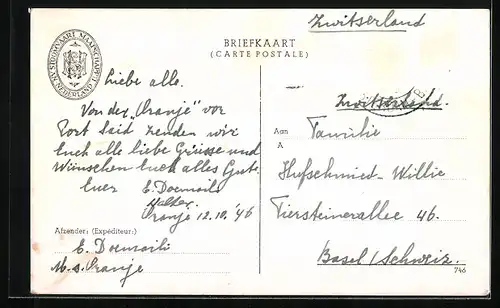 Zwitserland
BRIEFKAART
(CARTE POSTALE)
STOOMVAART MAATSCHAPPIJ
Liebe alle.
Von der „Oranje" vor
Port Said senden wir
Euch alle liebe Grüsse und
Wünschen Euch alles Gute.
Euer E.
Oranje 12.10.46
Afzender: (Expéditeur:)
E.
M.s. Oranje
Zwitserland.
Aan Familie
A
Hufschmied-Willie
Tiersteinerallee 46.
Basel/Schweiz.
746